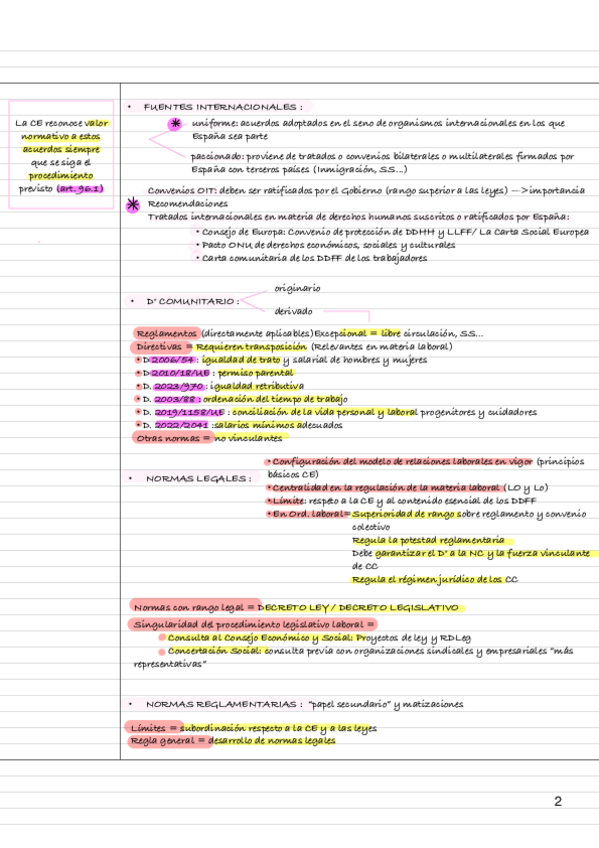 La CE reconoce valor
normativo a estos
acuerdos siempre
que se siga el
procedimiento
previsto (art. 96.1)
• FUENTES INTERNACIONALES :
uniforme: acuerdos adoptados en el seno de organismos internacionales en los que
España sea parte
paccionado: proviene de tratados o convenios bilaterales o multilaterales firmados por
España con terceros países (Inmigración, SS...)
Convenios OIT: deben ser ratificados por el Gobierno (rango superior a las leyes) —>importancia
Recomendaciones
Tratados internacionales en materia de derechos humanos suscritos o ratificados por España:
• Consejo de Europa: Convenio de protección de DDHH y LLFF/ La Carta Social Europea
• Pacto ONU de derechos económicos, sociales y culturales
• Carta comunitaria de los DDFF de los trabajadores
originario
• Dº COMUNITARIO :
derivado
Reglamentos (directamente aplicables)Excepcional = libre circulación, SS...
Directivas = Requieren transposición (Relevantes en materia laboral)
• D 2006/54 : igualdad de trato y salarial de hombres y mujeres
• D 2010/18/UE : permiso parental
• D. 2023/970 : igualdad retributiva
• D. 2003/88 : ordenación del tiempo de trabajo
• D. 2019/1158/UE : conciliación de la vida personal y laboral progenitores y cuidadores
• D. 2022/2041 :salarios mínimos adecuados
Otras normas = no vinculantes
• Configuración del modelo de relaciones laborales en vigor (principios
básicos CE)
• NORMAS LEGALES :
• Centralidad en la regulación de la materia laboral (LO y Lo)
• Límite: respeto a la CE y al contenido esencial de los DDFF
• En Ord. laboral= Superioridad de rango sobre reglamento y convenio
colectivo
Regula la potestad reglamentaria
Debe garantizar el Dº a la NC y la fuerza vinculante
de CC
Regula el régimen jurídico de los CC
Normas con rango legal = DECRETO LEY / DECRETO LEGISLATIVO
Singularidad del procedimiento legislativo laboral =
Consulta al Consejo Económico y Social: Proyectos de ley y RDLeg
Concertación Social: consulta previa con organizaciones sindicales y empresariales “más
representativas”
• NORMAS REGLAMENTARIAS : “papel secundario” y matizaciones
Límites = subordinación respecto a la CE y a las leyes
Regla general = desarrollo de normas legales
2